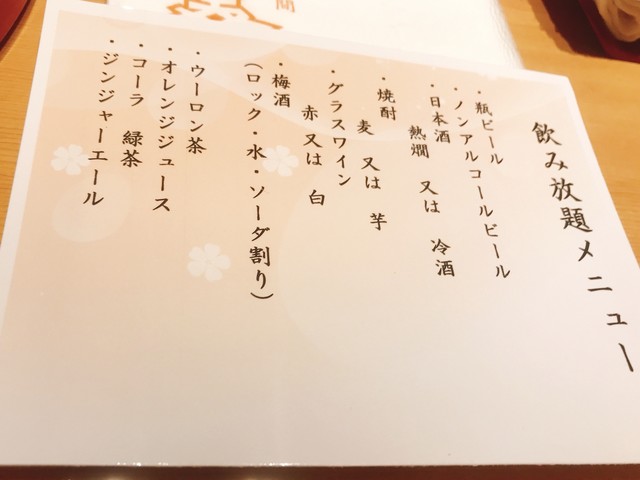 飲み放題メニュー
・瓶ビール
・ノンアルコールビール
・日本酒
熱燗 又は 冷酒
・焼酎
麦 又は 芋
・グラスワイン
赤 又は 白
・梅酒
（ロック・水・ソーダ割り）
・ウーロン茶
・オレンジジュース
・コーラ 緑茶
・ジンジャーエール